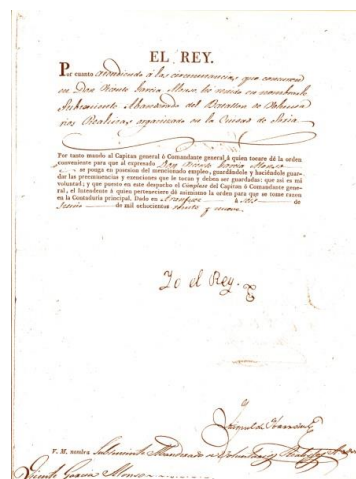 EL REY.
Por cuanto atendiendo á las circunstancias que concurren
en Don Vicente Garcia Alonso, he venido en nombrarle
Subteniente Abanderado del Batallon de Volunta-
rios Realistas organizado en la Ciudad de Soria
Por tanto mando al Capitan general ó Comandante general á quien tocare dé la orden
conveniente para que al expresado Don Vicente Garcia Alonso
se ponga en posesion del mencionado empleo, guardándole y haciéndole guar-
dar las preeminencias y exenciones que le tocan y deben ser guardadas: que asi es mi
voluntad; y que puesto en este despacho el Cúmplase del Capitan ó Comandante gene-
ral, el Intendente á quien perteneciere dé asimismo la orden para que se tome razon
en la Contaduría principal. Dado en Aranjuez á seis de
Junio de mil ochocientos veinte y nueve.
Yo el Rey.
V. M. nombra Subteniente Abanderado de Voluntarios Realistas á
Vicente Garcia Alonso